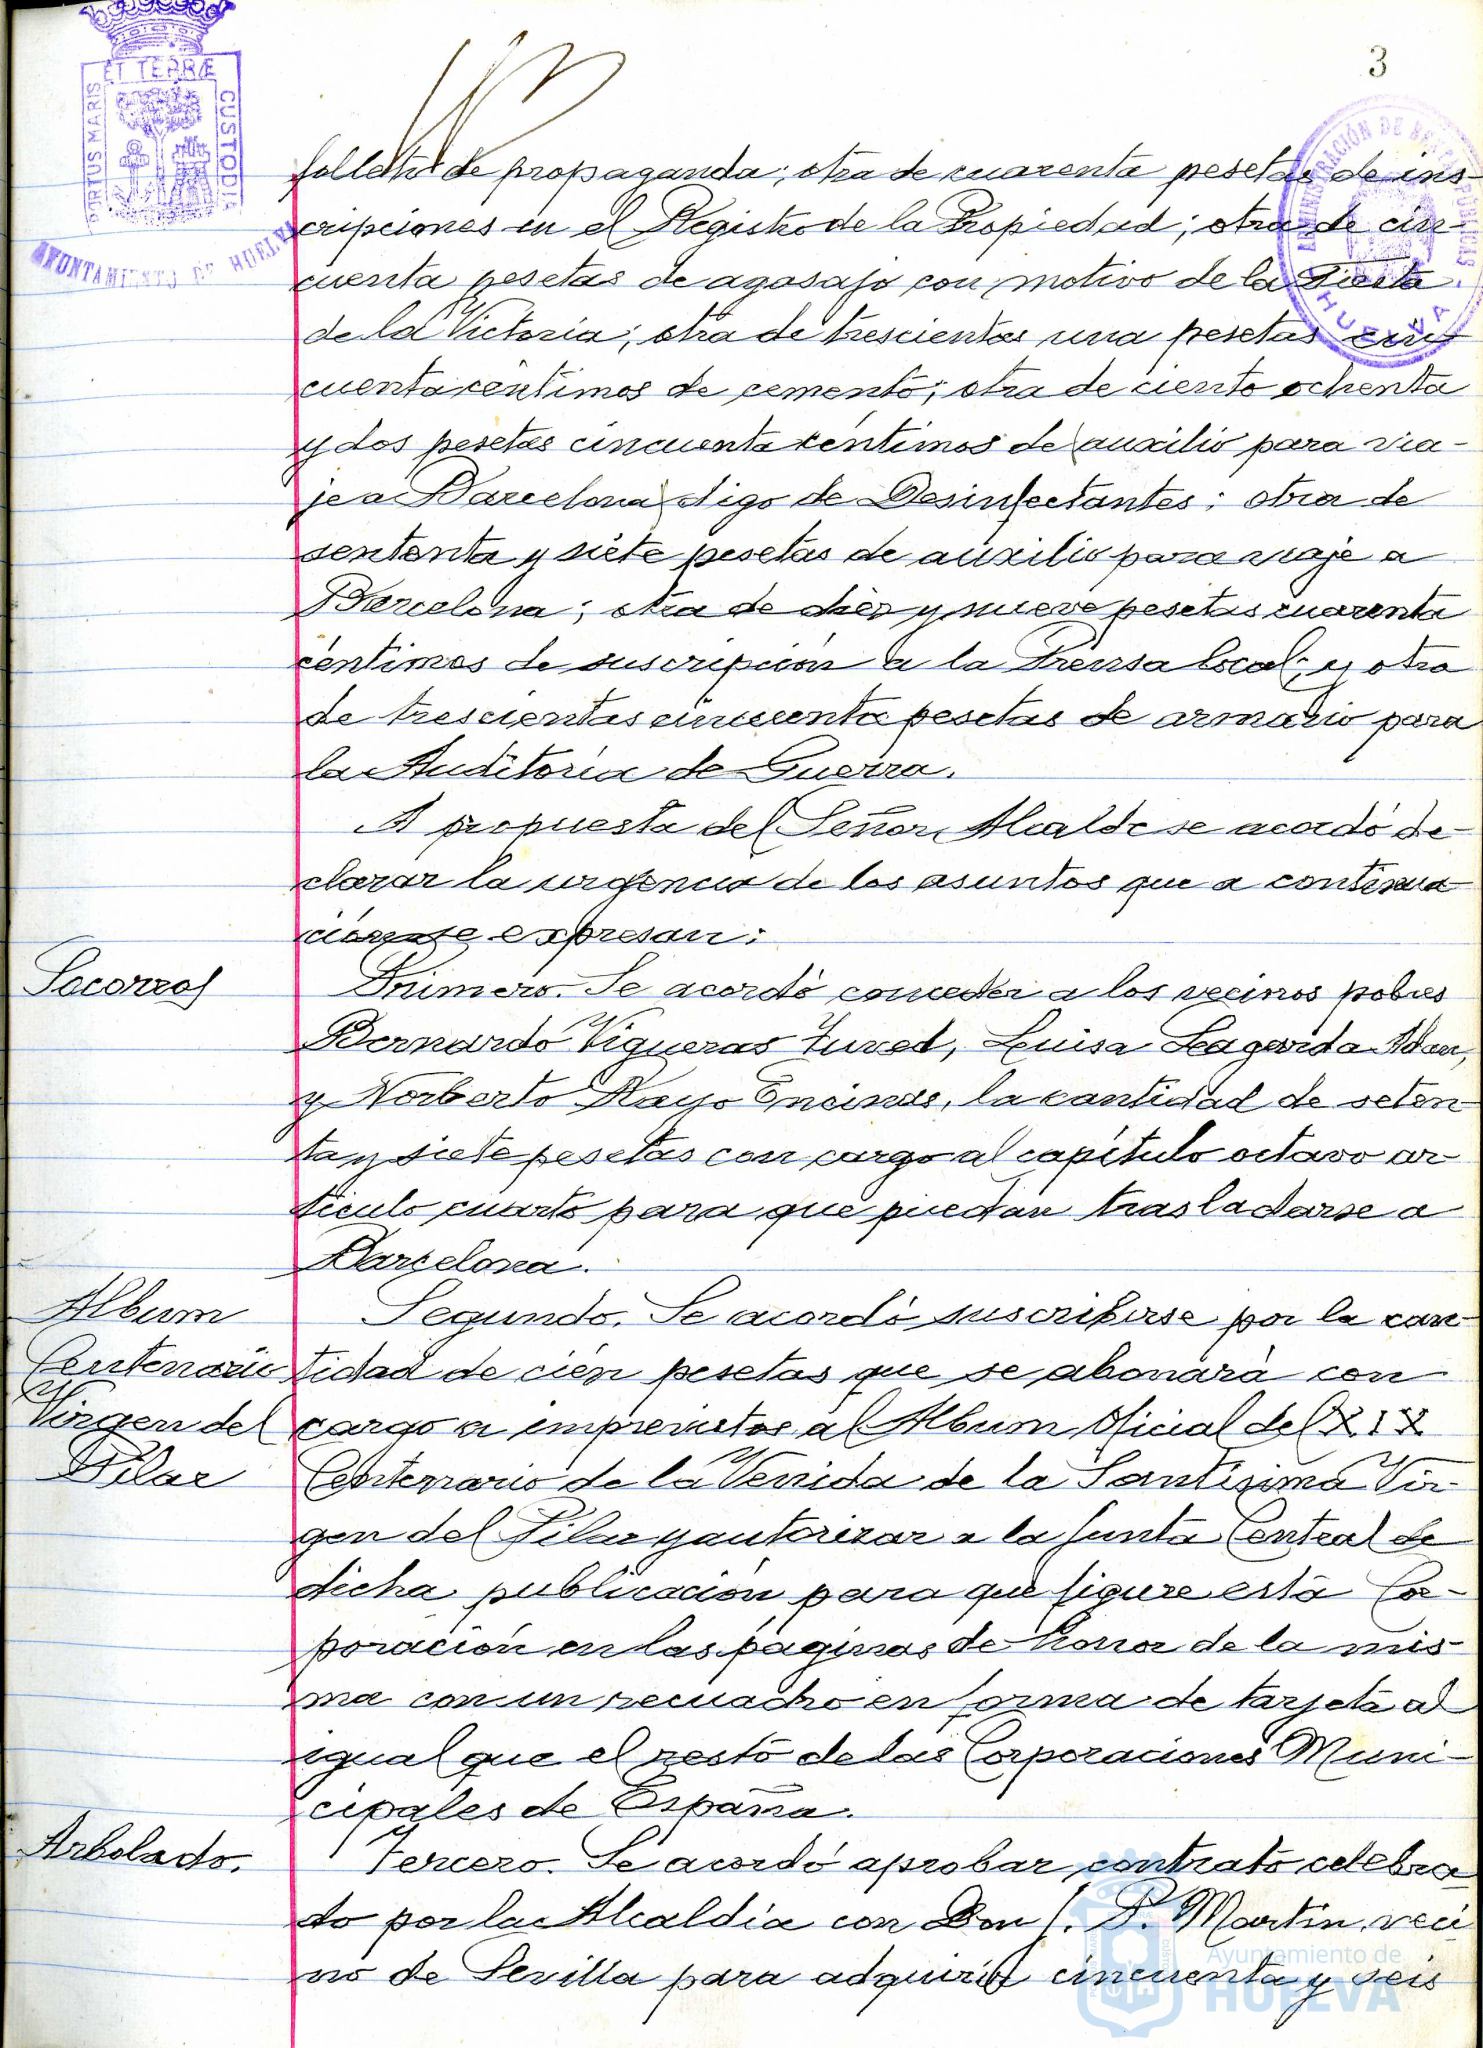 3
PORTUS MARIS
ET TERRÆ
CUSTODIA
AYUNTAMIENTO DE HUELVA
ADMINISTRACIÓN DE
HUELVA
folletos de propaganda; otra de cuarenta pesetas de ins-
cripciones en el Registro de la Propiedad; otra de cin-
cuenta pesetas de agasajo con motivo de la Fiesta
de la Victoria; otra de trescientas una pesetas cin
cuenta céntimos de cemento; otra de ciento ochenta
y dos pesetas cincuenta céntimos de (auxilio para via-
je a Barcelona) digo de Desinfectantes; otra de
sententa y siete pesetas de auxilio para viaje a
Barcelona; otra de diez y nueve pesetas cuarenta
céntimos de suscripción a la Prensa local; y otra
de trescientas cincuenta pesetas de armario para
la Auditoría de Guerra.
A propuesta del Señor Alcalde se acordó de-
clarar la urgencia de los asuntos que a continua
ción se expresan:
Socorros
Primero. Se acordó conceder a los vecinos pobres
Bernardo Vigueras Tured, Luisa Lagarida Adan,
y Norberto Rayo Encinas, la cantidad de seten-
ta y siete pesetas con cargo al capítulo octavo ar-
tículo cuarto para que puedan trasladarse a
Barcelona.
Album
Centenario
Virgen del
Pilar
Segundo. Se acordó suscribirse por la can-
tidad de cien pesetas que se abonará con
cargo a imprevistos al Album Oficial del XIX
Centenario de la Venida de la Santísima Vir-
gen del Pilar y autorizar a la Junta Central de
dicha publicación para que figure esta Cor-
poración en las páginas de honor de la mis-
ma con un recuadro en forma de tarjeta al
igual que el resto de las Corporaciones Muni-
cipales de España.
Arbolado.
Tercero. Se acordó aprobar contrato celebra-
do por la Alcaldía con Don J. P. Martin, veci
no de Sevilla para adquirir cincuenta y seis
Ayuntamiento de
HUELVA